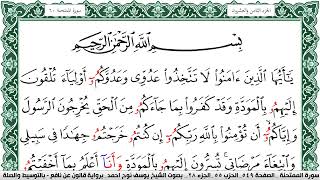 الجزء الثامن والعشرون
سورة الممتحنة ٦٠
بِسْمِ اللَّهِ الرَّحْمَٰنِ الرَّحِيمِ
يَٰٓأَيُّهَا الَّذِينَ ءَامَنُوا لَا تَتَّخِذُوا عَدُوِّي وَعَدُوَّكُمُ أَوْلِيَآءَ تُلْقُونَ
إِلَيْهِمُ بِالْمَوَدَّةِ وَقَدْ كَفَرُوا بِمَا جَآءَكُمُ مِنَ الْحَقِّ يُخْرِجُونَ الرَّسُولَ
وَإِيَّاكُمُ أَنْ تُؤْمِنُوا بِاللَّهِ رَبِّكُمُ إِنْ كُنْتُمُ خَرَجْتُمُ جِهَٰدًا فِي سَبِيلِي
وَابْتِغَآءَ مَرْضَاتِي تُسِرُّونَ إِلَيْهِمُ بِالْمَوَدَّةِ وَأَنَا أَعْلَمُ بِمَا أَخْفَيْتُمُ
سورة الممتحنة - الصفحة ٥٤٩ - الحزب ٥٥ - الجزء ٢٨ - بصوت الشيخ يوسف نوح احمد - برواية قالون عن نافع - بالتوسط والصلة